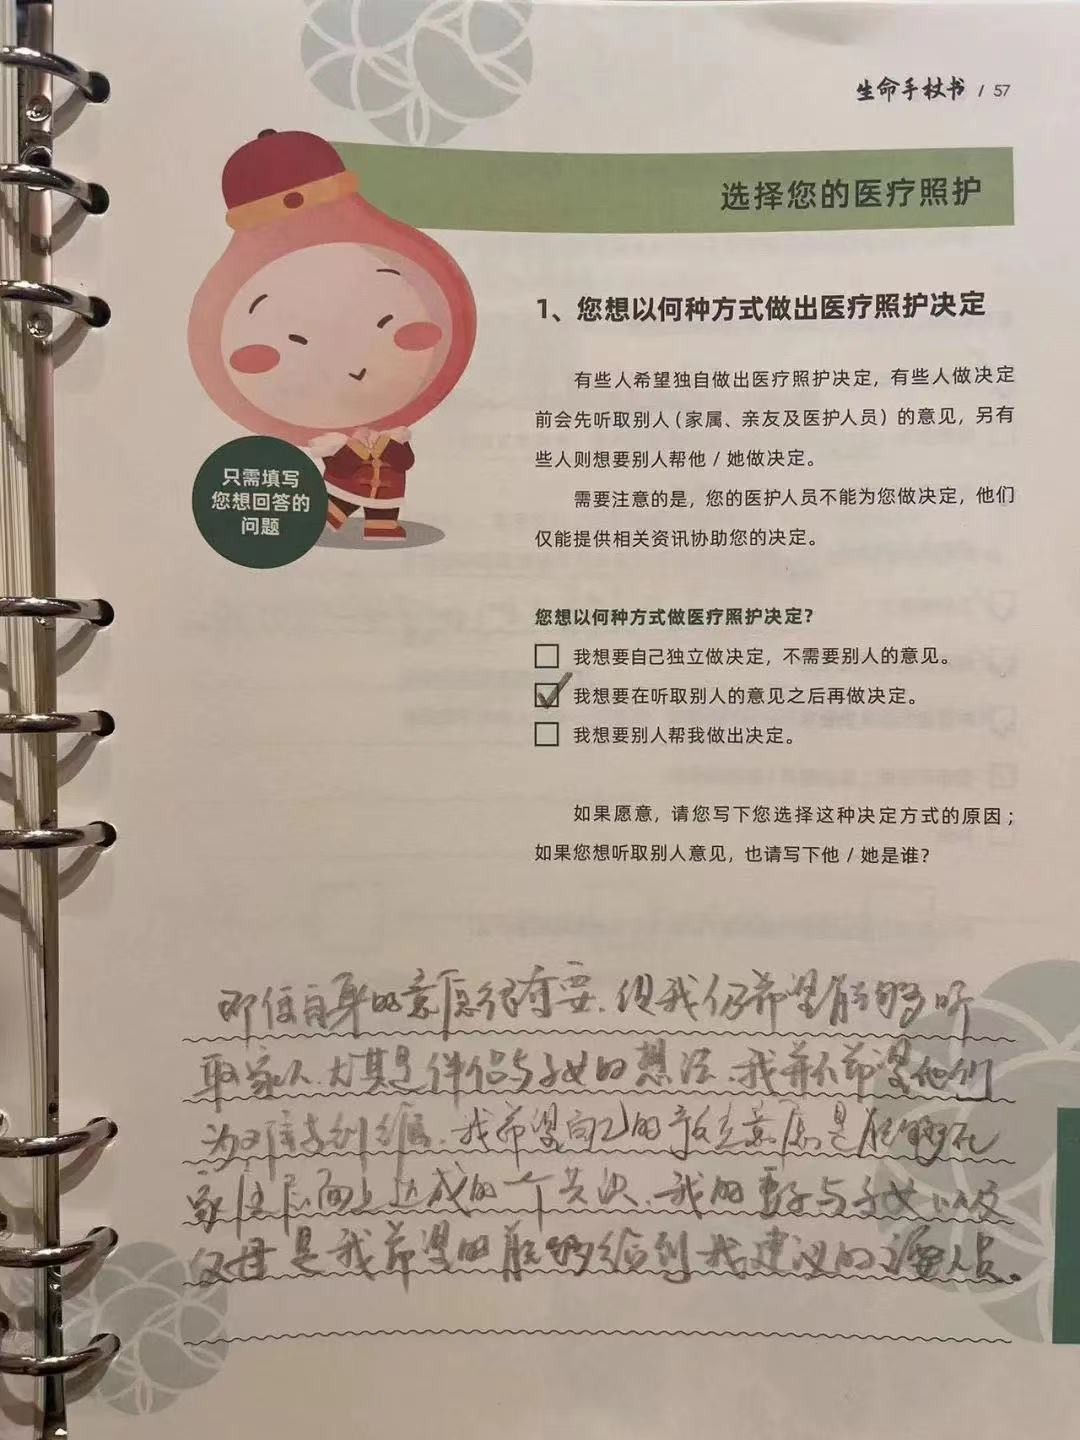 生命手杖书 / 57
选择您的医疗照护
1、您想以何种方式做出医疗照护决定
有些人希望独自做出医疗照护决定，有些人做决定
前会先听取别人（家属、亲友及医护人员）的意见，另有
些人则想要别人帮他 / 她做决定。
需要注意的是，您的医护人员不能为您做决定，他们
仅能提供相关资讯协助您的决定。
只需填写
您想回答的
问题
您想以何种方式做医疗照护决定？
我想要自己独立做决定，不需要别人的意见。
我想要在听取别人的意见之后再做决定。
我想要别人帮我做出决定。
如果愿意，请您写下您选择这种决定方式的原因；
如果您想听取别人意见，也请写下他 / 她是谁？
即使自身的意愿很重要，但我仍希望能够听
取家人，尤其是伴侣与子女的想法，我并不希望他们
为难，我希望自己的意愿是能够在
家庭层面上达成的一个共识，我的妻子与子女以及
父母是我希望的能够给到我建议的人员。